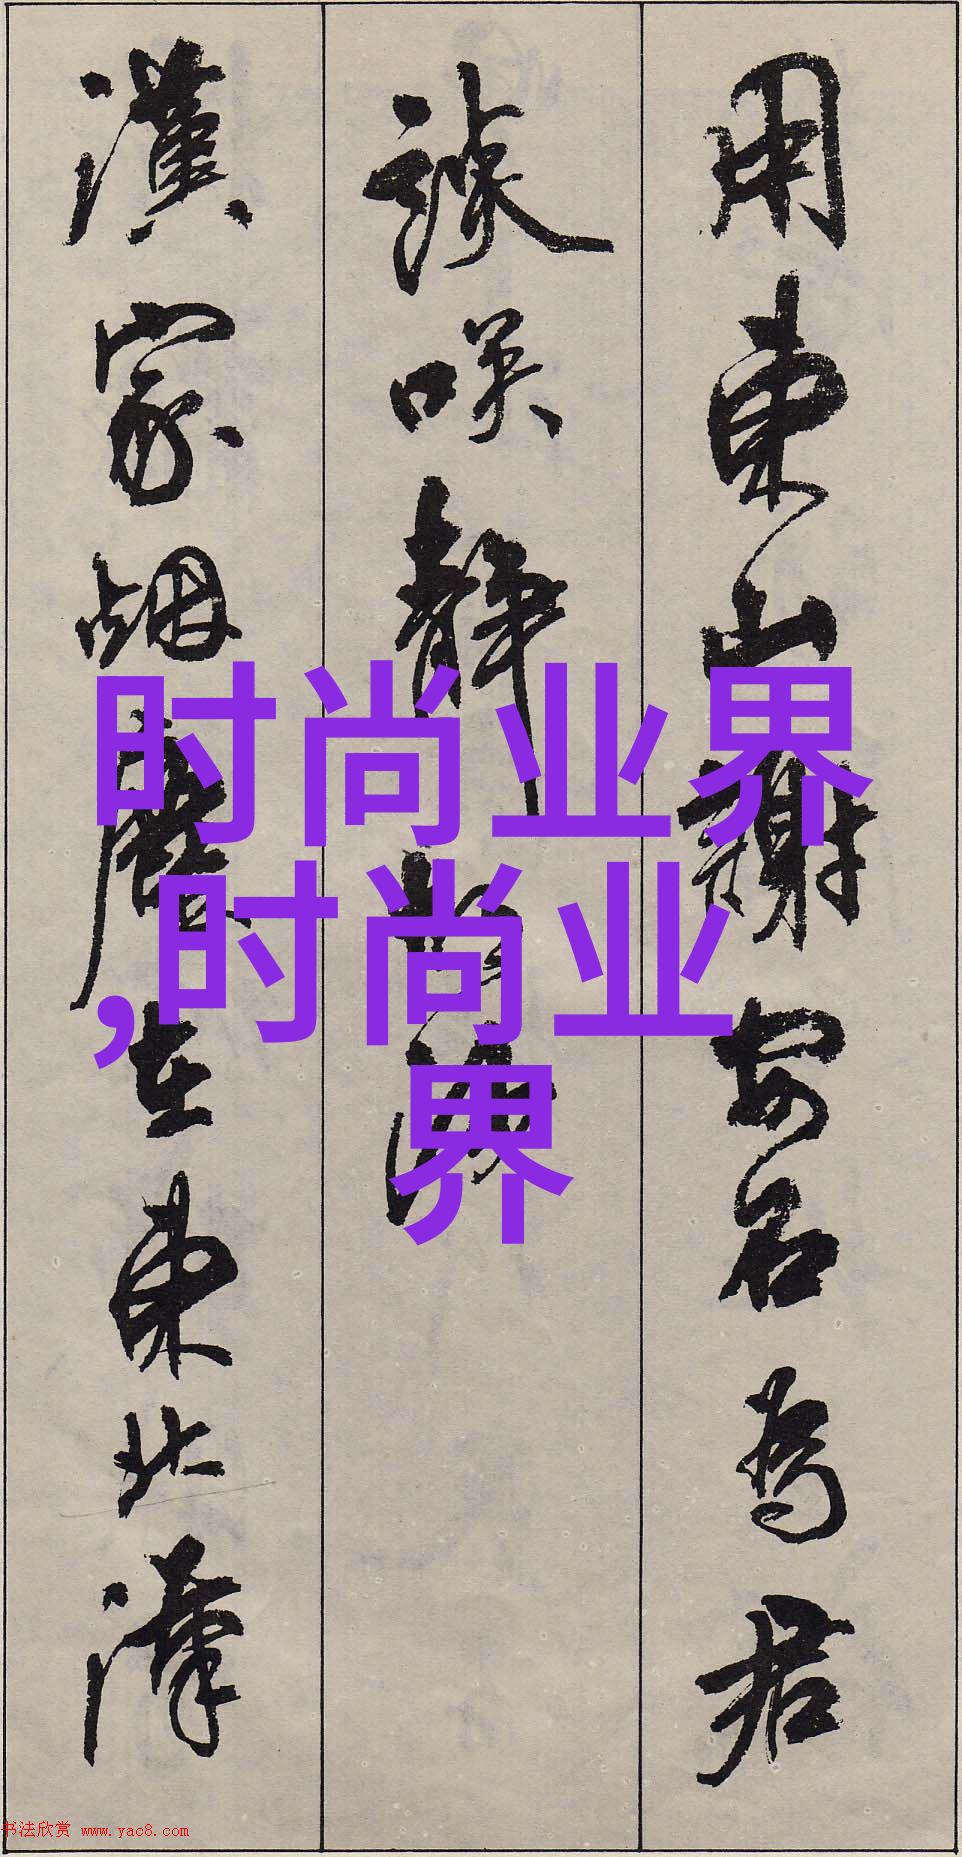 用東山謝安石為君
談咲靜胡沙
漢家烟塵在東北漢
时尚业界
,时尚业
界
书法欣赏 www.yac8.com